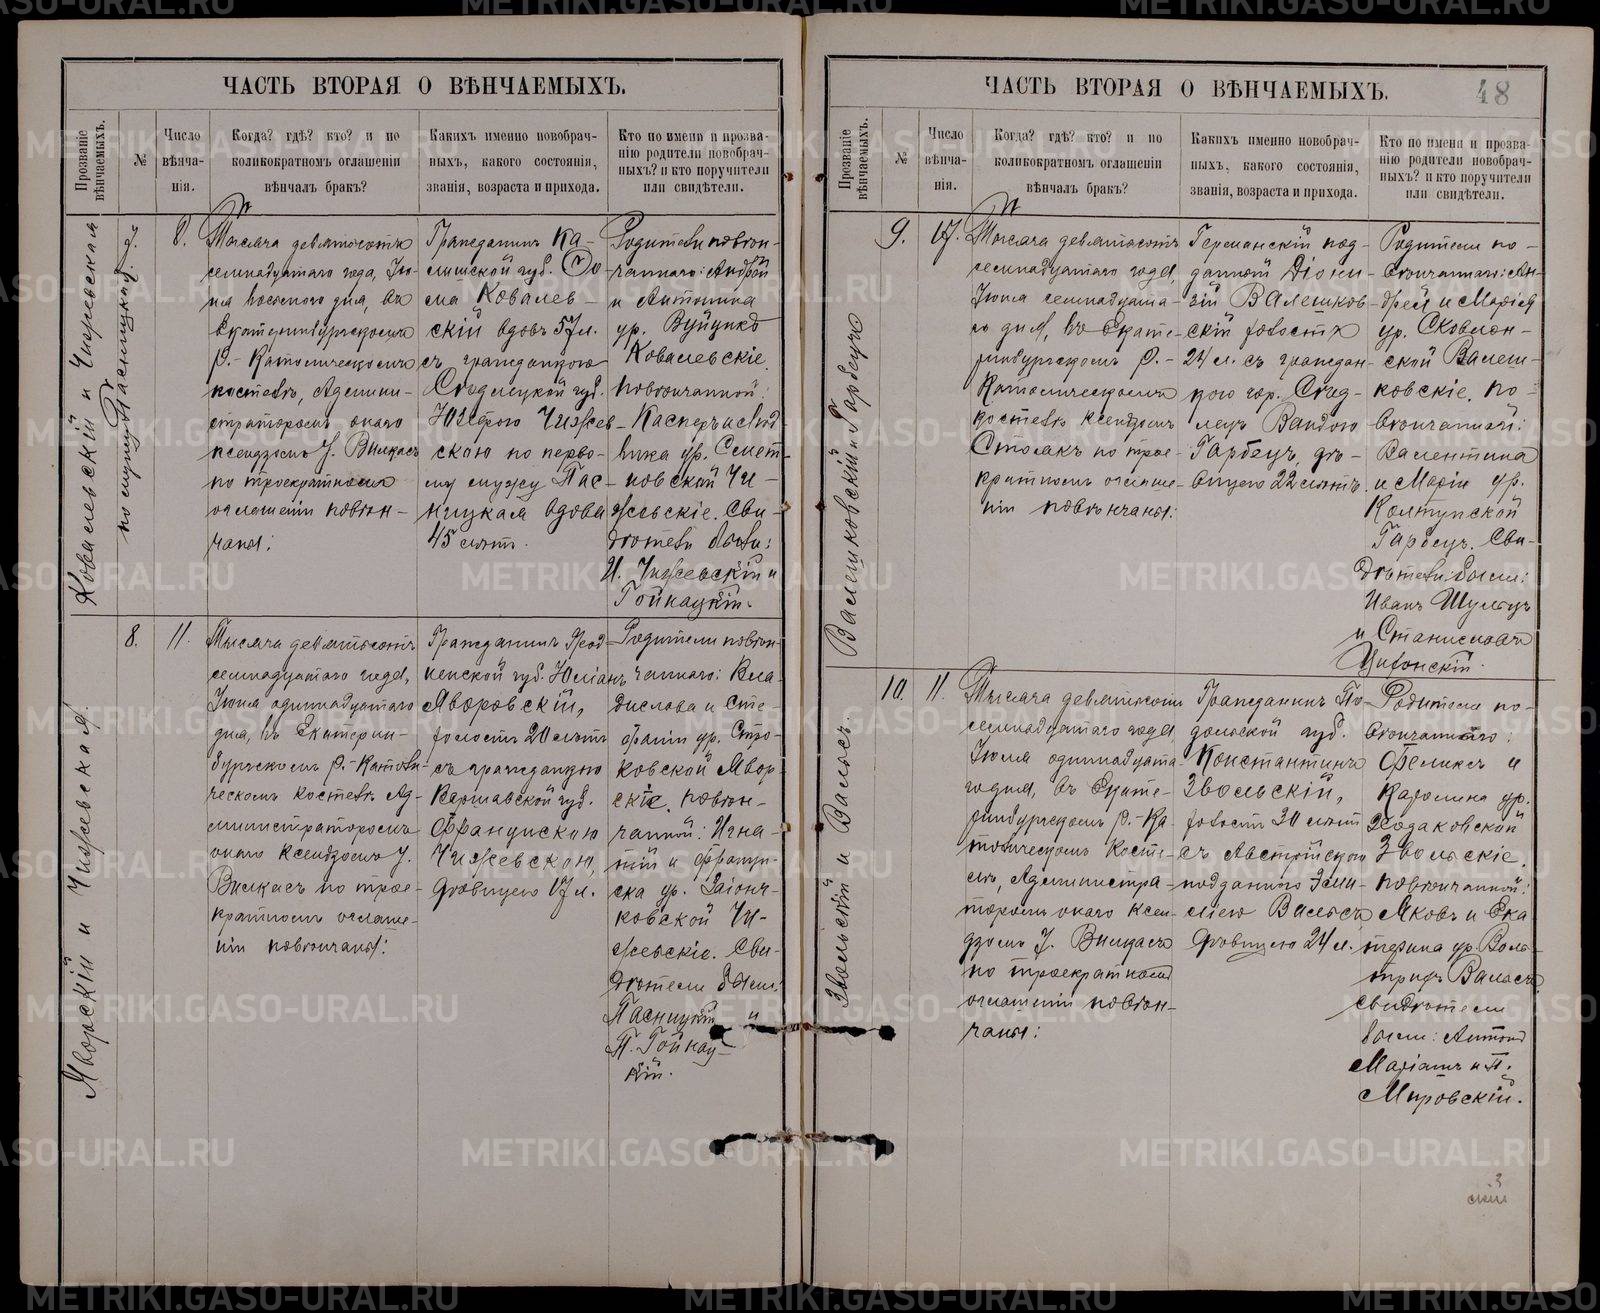 ЧАСТЬ ВТОРАЯ О ВѢНЧАЕМЫХЪ.
Прозваніе вѣнчаемыхъ.
№
Число
вѣнча-
нія.
Когда? гдѣ? кто? и по
коликократномъ оглашеніи
вѣнчалъ бракъ?
Какихъ именно новобрач-
ныхъ, какого состоянія,
званія, возраста и прихода.
Кто по имени и прозва-
нію родители новобрач-
ныхъ? и кто поручители
или свидѣтели.
Ковалевскій и Чижевская
по мужу Пасницкая
8.
Тысяча девятьсотъ
семнадцатаго года, Ію-
ля восьмого дня, въ
Екатеринбургскомъ
Р.-Католическомъ
костелѣ, Админи-
страторомъ онаго
ксендзомъ І. Вилкасъ
по троекратномъ
оглашеніи повѣн-
чаны:
Гражданинъ Ка-
лишской губ. Ѳо
ма Ковалев-
скій вдовъ 57 л.
съ гражданкою
Сѣдлецкой губ.
Юзефою Чижев-
скою по перво-
му мужу Пас-
ницкая вдова
45 лѣтъ.
Родители повѣн-
чаннаго: Андрей
и Антонина
ур. Вуйцикъ
Ковалевскіе.
повѣнчанной:
Касперъ и Люд-
вика ур. Смет-
ковской Чи-
жевскіе. Сви-
дѣтели были:
И. Чижевскій и
Гойнацкій.
8.
11.
Яворскій и Чижевская.
Тысяча девятьсотъ
семнадцатаго года,
Іюля одиннадцатаго
дня, въ Екатерин-
бургскомъ Р.-Катол-
ческомъ костелѣ Ад-
министраторомъ
онаго Ксендзомъ І.
Вилкасъ по трое-
кратномъ оглаше-
ніи повѣнчаны:
Гражданинъ Грод-
ненской губ. Юліанъ
Яворовскій,
холостъ 20 лѣтъ
съ гражданкою
Варшавской губ.
Францискою
Чижевскою,
дѣвицею 17 л.
Родители повѣн-
чаннаго: Вла-
дислава и Сте-
фаніи ур. Стро-
ковской Явор-
скіе. повѣн-
чанной: Игна-
тій и Францис-
ка ур. Заіонч-
ковской Чи-
жевскіе. Сви-
дѣтели были:
Пасницкій и
П. Гойнац-
кій.
ЧАСТЬ ВТОРАЯ О ВѢНЧАЕМЫХЪ.
48
Прозваніе вѣнчаемыхъ.
№
Число
вѣнча-
нія.
Когда? гдѣ? кто? и по
коликократномъ оглашеніи
вѣнчалъ бракъ?
Какихъ именно новобрач-
ныхъ, какого состоянія,
званія, возраста и прихода.
Кто по имени и прозва-
нію родители новобрач-
ныхъ? и кто поручители
или свидѣтели.
Валешковскій и Гарбецъ
9.
17.
Тысяча девятьсотъ
семнадцатаго года,
Іюля семнадцата-
го дня, въ Екате-
ринбургскомъ Р.-
Католическомъ
костелѣ Ксендзомъ
Столакъ по трое-
кратномъ оглаше-
ніи повѣнчаны:
Германскій под-
данный Діони-
зій Валешков-
скій холостъ
24 л. съ граждан-
кою гор. Сѣд-
лецъ Вандою
Гарбецъ, дѣ-
вицею 22 лѣтъ.
Родители по-
вѣнчаннаго: Ан-
дрей и Марія
ур. Сковрон-
ской Валеш-
ковскіе. По-
вѣнчанной:
Валентина
и Маріи ур.
Колтунской
Гарбецъ. Сви-
дѣтели были:
Иванъ Шульцъ
и Станиславъ
Цихонскій.
Звольскій и Валясъ.
10.
11.
Тысяча девятьсотъ
семнадцатаго года
Іюля одиннадцата-
го дня, въ Екате-
ринбургскомъ Р.-Ка-
толическомъ Косте-
лѣ, Администра-
торомъ онаго Ксен-
дзомъ І. Вилкасъ
по троекратномъ
оглашеніи повѣн-
чаны:
Гражданинъ По-
дольской губ.
Константинъ
Звольскій,
холостъ 30 лѣтъ
съ Австрійскою
подданною Эми-
ліею Валясъ
дѣвицею 24 л.
Родители по-
вѣнчаннаго:
Феликсъ и
Каролина ур.
Ходаковской
Звольскіе.
повѣнчанной:
Яковъ и Ека-
терина ур. Воль-
Валясъ.
свидѣтели
были: Антонъ
Маріанъ и П.
Мировскій.
METRIKI.GASO-URAL.RU